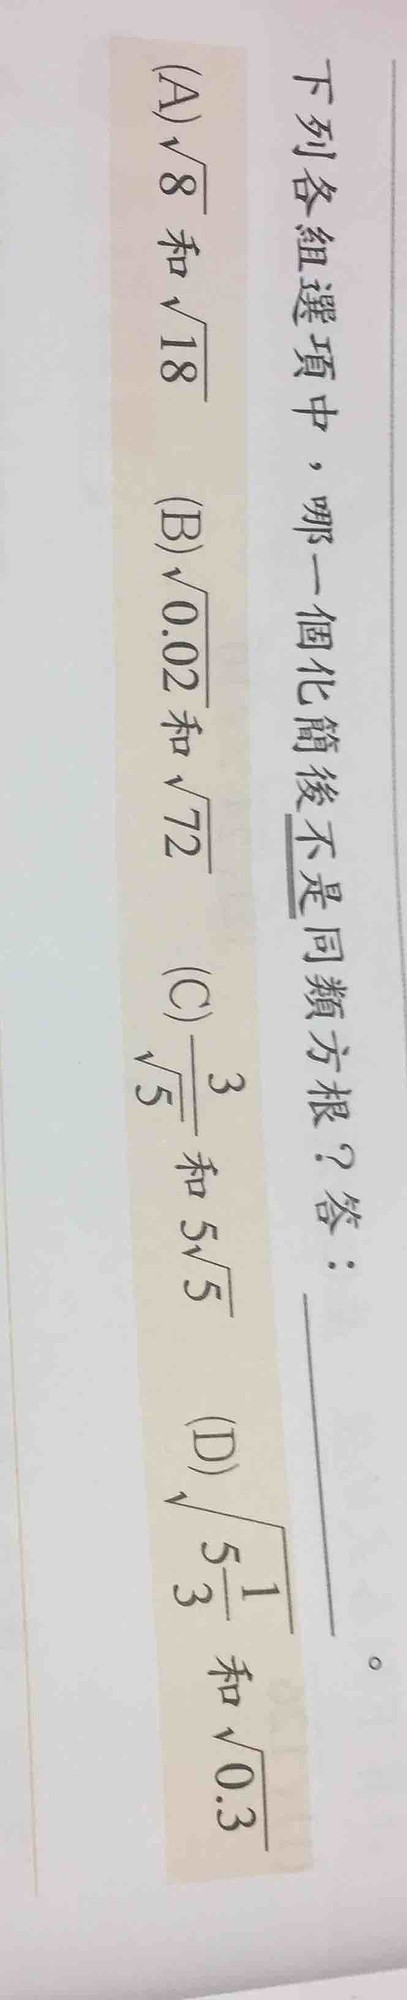 下列各組選項中，哪一個化簡後不是同類方根？答：________。
(A) √8 和 √18 (B) √0.02 和 √72 (C) 3/√5 和 5√5 (D) √(5 1/3) 和 √0.3